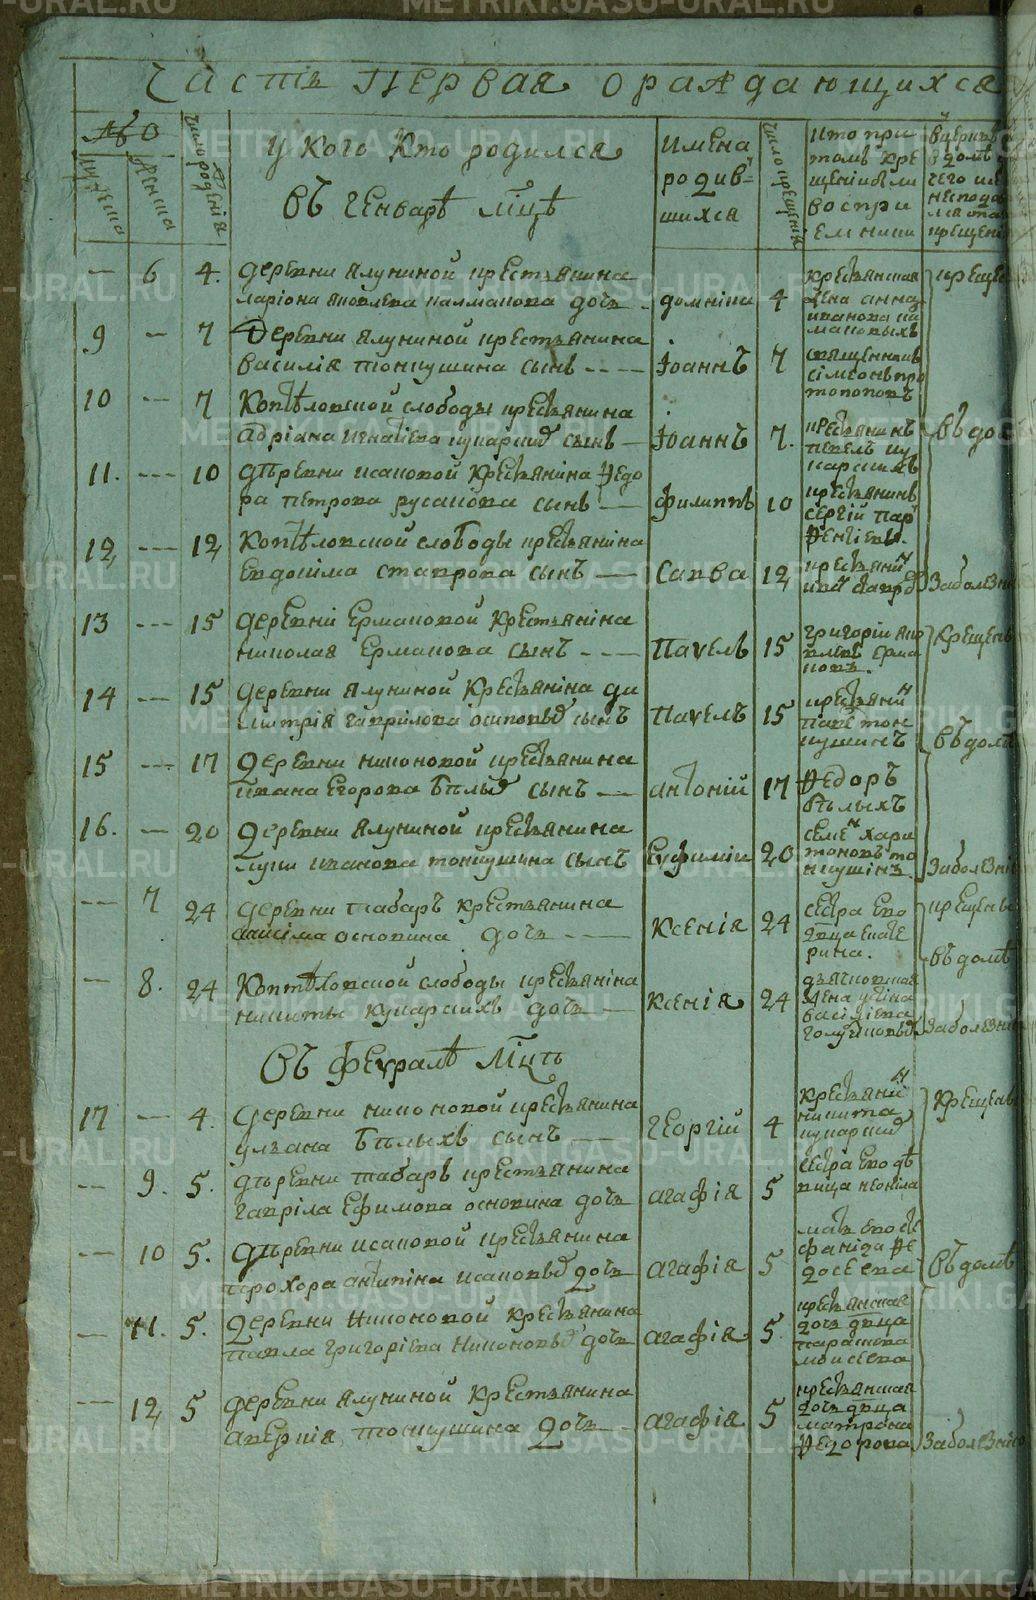 Часть Первая о раждающихся
№о
мужеска
женска
число рождения
У кого кто родился
въ Генварѣ мцѣ
Имена
родив
шихся
число крещения
кто при
томъ кре
щении были
воспри
емники
6 4. деревни Ялуниной крестьянина
лариона яковлева калмакова дочь
домника 4
крестьянская
жена анна
иванова ка
лмаковыхъ
креще
9 7 Деревни Ялуниной крестьянина
василия тонкушина сынъ
Іоаннъ 7
священникъ
сімеонъ про
топоповъ
10 7 Коптѣловской слободы крестьянина
адріана игнатіева кукарскиⷯ сынъ
Іоаннъ 7.
крестьянинъ
павелъ ку
карскихъ
въ до
11. 10 дѣревни исаковой крестьянина Ѳедо
ра петрова русакова сынъ
филиппъ 10
крестьянинъ
сергій пар
Ѳентіевъ.
12 12 Коптѣловской слободы крестьянина
Евдокіма ставрова сынъ
Савва 12
крестьяниⷩ
За болезни
13 15 деревні Ермаковой крестьяніна
николая Ермакова сынъ
Павелъ 15
григорій яко
влевъ ерма
ковъ.
крещенъ
14 15 деревни Ялуниной крестьяніна ди
митрія гаврілова осиповыⷯ сынъ
Павелъ 15
крестьяниⷩ
паве тон
кушинъ
въ домѣ
15 17 деревни никоновой крестьянина
ивана Егорова бѣлыⷯ сынъ
антоній 17
Ѳедоръ
бѣлыхъ
16. 20 деревни Ялуниной крестьянина
луки иванова тонкушина сынъ
Еуфимій 20
семеⷩ хари
тоновъ то
нкушінъ.
За болезні
7 24 деревни табаръ крестьянина
анисіма осковина дочь
Ксенія 24
сестра ево
дѣвица екате
рина.
крещены
въ домѣ
8. 24 Коптѣловской слободы крестьяніна
никиты кукарскихъ дочь
Ксенія 24
дьячковская
жена
васіліева
За болезни
въ феуралѣ мцѣ
17 4. деревни никоновой крестьянина
ульяна бѣлыхъ сынъ
Георгій 4
крестьяніⷩ
никита
кукарскиⷯ
крещены
9. 5. дѣревни табаръ крестьянина
гавріла Ефимова осковина дочь
агафія 5
сестра ево дѣ
вица неоніла
10 5. дѣревни исаковой крестьянина
прохора антипіна исаковыⷯ дочь
агафія 5
мать ево сте
фаніда Ѳе
досеева
въ домѣ
11. 5. деревни Никоновой крестьянина
павла григоріева Никоновыⷯ дочь
агафія 5
крестьянская
дочь дѣвца
параскева
моисеева
12 5 деревни Ялуниной крестьянина
аверкия тонкушина дочь
агафія 5
крестьянская
дочь дѣвца
матрона
Ѳедорова
За болезнію
METRIKI.GASO-URAL.RU